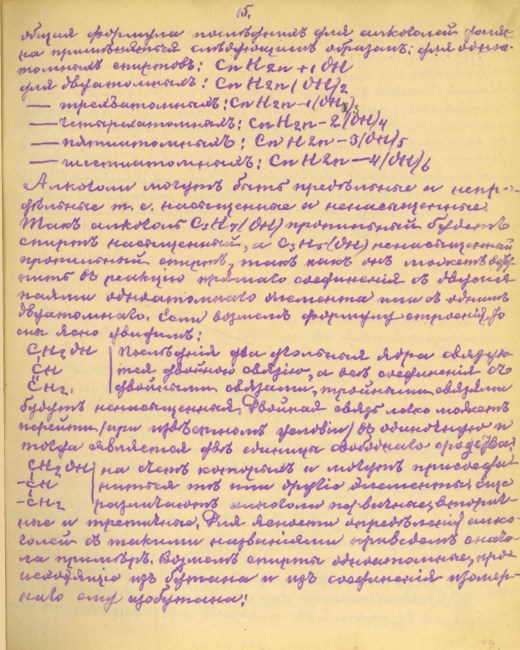 15.
общая формула последнихъ для алкоголей
на примѣняется слѣдующимъ образомъ: для одноа-
томныхъ спиртовъ: CnH2n+1OH
для двуатомныхъ: CnH2n(OH)2
— трехатомныхъ: CnH2n-1(OH)3
— четырехатомныхъ: CnH2n-2(OH)4
— пятиатомныхъ: CnH2n-3(OH)5
— шестиатомныхъ: CnH2n-4(OH)6
Алкоголи могутъ быть предѣльные и непре-
дѣльные т. е. насыщенные и ненасыщенные.
Такъ алкоголь C3H7(OH) пропильный будетъ
спиртъ насыщенный, а C3H5(OH) ненасыщенный
пропильный спиртъ, такъ какъ онъ можетъ всту-
пить въ реакцію прямаго соединенія съ двумя
паями одноатомнаго элемента или съ однимъ
двуатомнаго. Если возьмемъ формулу строенія, то
мы ясно увидимъ:
CH2OH | Послѣднія два угольныя ядра связую-
CH | тся двойною связью, а всѣ соединенія съ
CH2. | двойными связями, тройными связями
будутъ ненасыщенныя. Двойная связь легко можетъ
перейти (при извѣстномъ условіи) въ одиночную и
тогда является двѣ единицы свободнаго сродства,
CH2OH | на счетъ которыхъ и могутъ присоеди-
-CH | ниться тѣ или другіе элементы. Еще
-CH2 | различаютъ алкоголи первичные, вторич-
ные и третичные. Для ясности опредѣленія алко-
голей съ такими названіями приведемъ снача-
ла примѣръ. Возьмемъ спирты одноатомные, про-
исходящіе изъ бутана и изъ соединенія изомер-
наго ему изобутана: